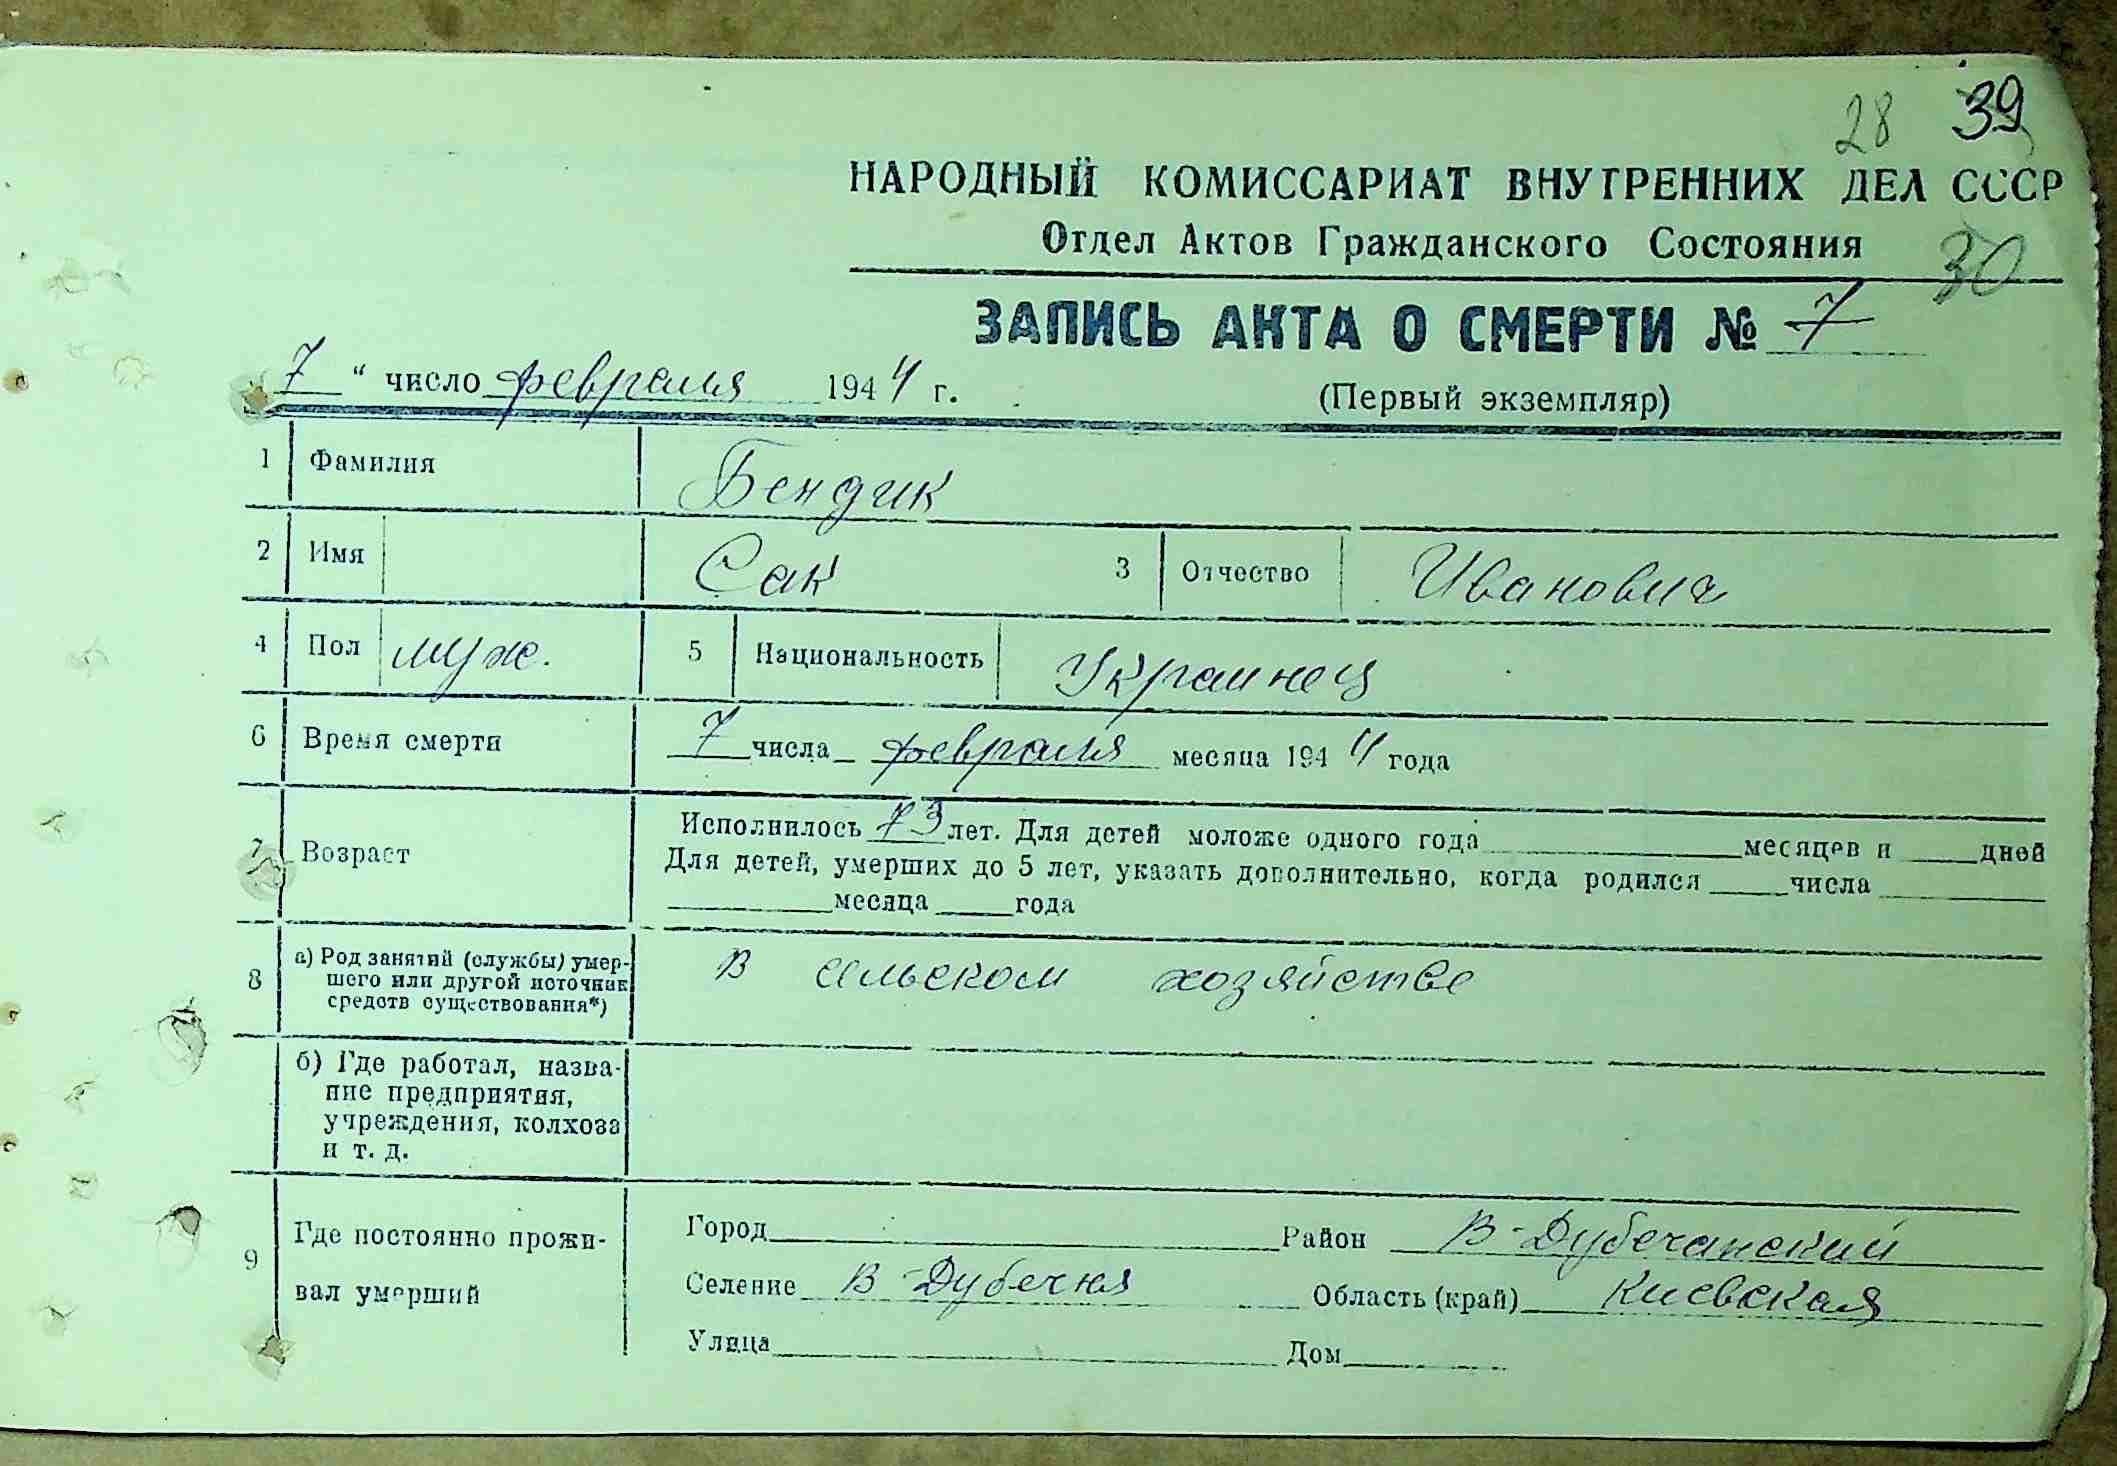 28 39
НАРОДНЫЙ КОМИССАРИАТ ВНУТРЕННИХ ДЕЛ СССР
Отдел Актов Гражданского Состояния 30
ЗАПИСЬ АКТА О СМЕРТИ № 7
7 " число февраля 1944 г. (Первый экземпляр)
1 Фамилия Бендик
2 Имя Сак 3 Отчество Иванович
4 Пол муж. 5 Национальность Украинец
6 Время смерти 7 числа февраля месяца 1944 года
Исполнилось 73 лет. Для детей моложе одного года месяцев и дней
7 Возраст Для детей, умерших до 5 лет, указать дополнительно, когда родился числа
месяца года
8 а) Род занятий (службы) умер-
шего или другой источник
средств существования*) В сельском хозяйстве
б) Где работал, назва-
ние предприятия,
учреждения, колхоза
и т. д.
9 Где постоянно прожи-
вал умерший
Город Район В-Дубечанский
Селение В-Дубечня Область (край) Киевская
Улица Дом